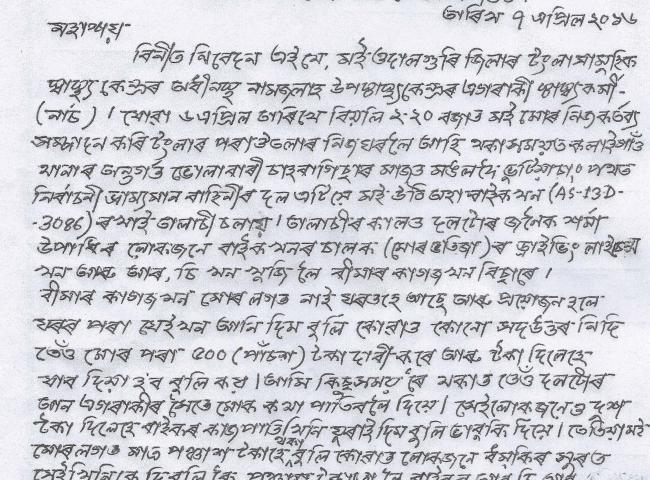 তাৰিখ ৭ এপ্ৰিল ২০১৬
মহাশয়
বিনীত নিবেদন এই যে, মই ওদালগুৰি জিলাৰ টংলা সামূহিক
স্বাস্থ্য কেন্দ্ৰৰ অধীনস্থ নামজলাহ উপস্বাস্থ্যকেন্দ্ৰৰ এগৰাকী স্বাস্থ্য কৰ্মী-
(নাৰ্চ) । যোৱা ৬ এপ্ৰিল তাৰিখে বিয়লি ২-২০ বজাত মই মোৰ নিজ কৰ্তব্য
সম্পাদন কৰি টংলাৰ পৰা তংলাৰ নিজ ঘৰলৈ আহি থকা সময়ত কলাইগাঁও
থানাৰ অন্তৰ্গত ভোলাবাৰী চাহ বাগিছাৰ মাজত মঙলদৈ ভুটিয়াচাং পথত
নিৰ্বাচনী ভ্ৰাম্যমান বাহিনীৰ দল এটিয়ে মই উঠি অহা বাইক খন (AS-13D-
-3086) ৰখাই তালাচী চলায় । তালাচীৰ কালত দলটোৰ জনৈক শৰ্মা
উপাধিৰ লোকজনে বাইক খনৰ চালক (মোৰ ভতিজা)ৰ ড্ৰাইভিং লাইচেন্স
খন আৰু আৰ, চি খন খুজি লৈ বীমাৰ কাগজ খন বিচাৰে ।
বীমাৰ কাগজ খন মোৰ লগত নাই ঘৰতহে আছে আৰু প্ৰয়োজন হলে
ঘৰৰ পৰা সেইখন আনি দিম বুলি কোৱাত কোনো সদুত্তৰ নিদি
তেওঁ মোৰ পৰা ৫০০ (পাঁচশ) টকা দাবী কৰে আৰু টকা দিলেহে
যাব দিয়া হব বুলি কয় । আমি কিছু সময় ৰৈ থকাত তেওঁ দলটোৰ
আন এগৰাকীৰ সৈতে মোক কথা পাতিবলৈ দিয়ে । সেই লোকজনেও দুশ
টকা দিলেহে বাইকৰ কাজপাতি খিনি ঘুৰাই দিম বুলি ভাবুকি দিয়ে । তেতিয়া মই
মোৰ লগত মাত্ৰ পঞ্চাশ টকাহে থকা বুলি কোৱাত লোকজনে ধমকিৰ সুৰত